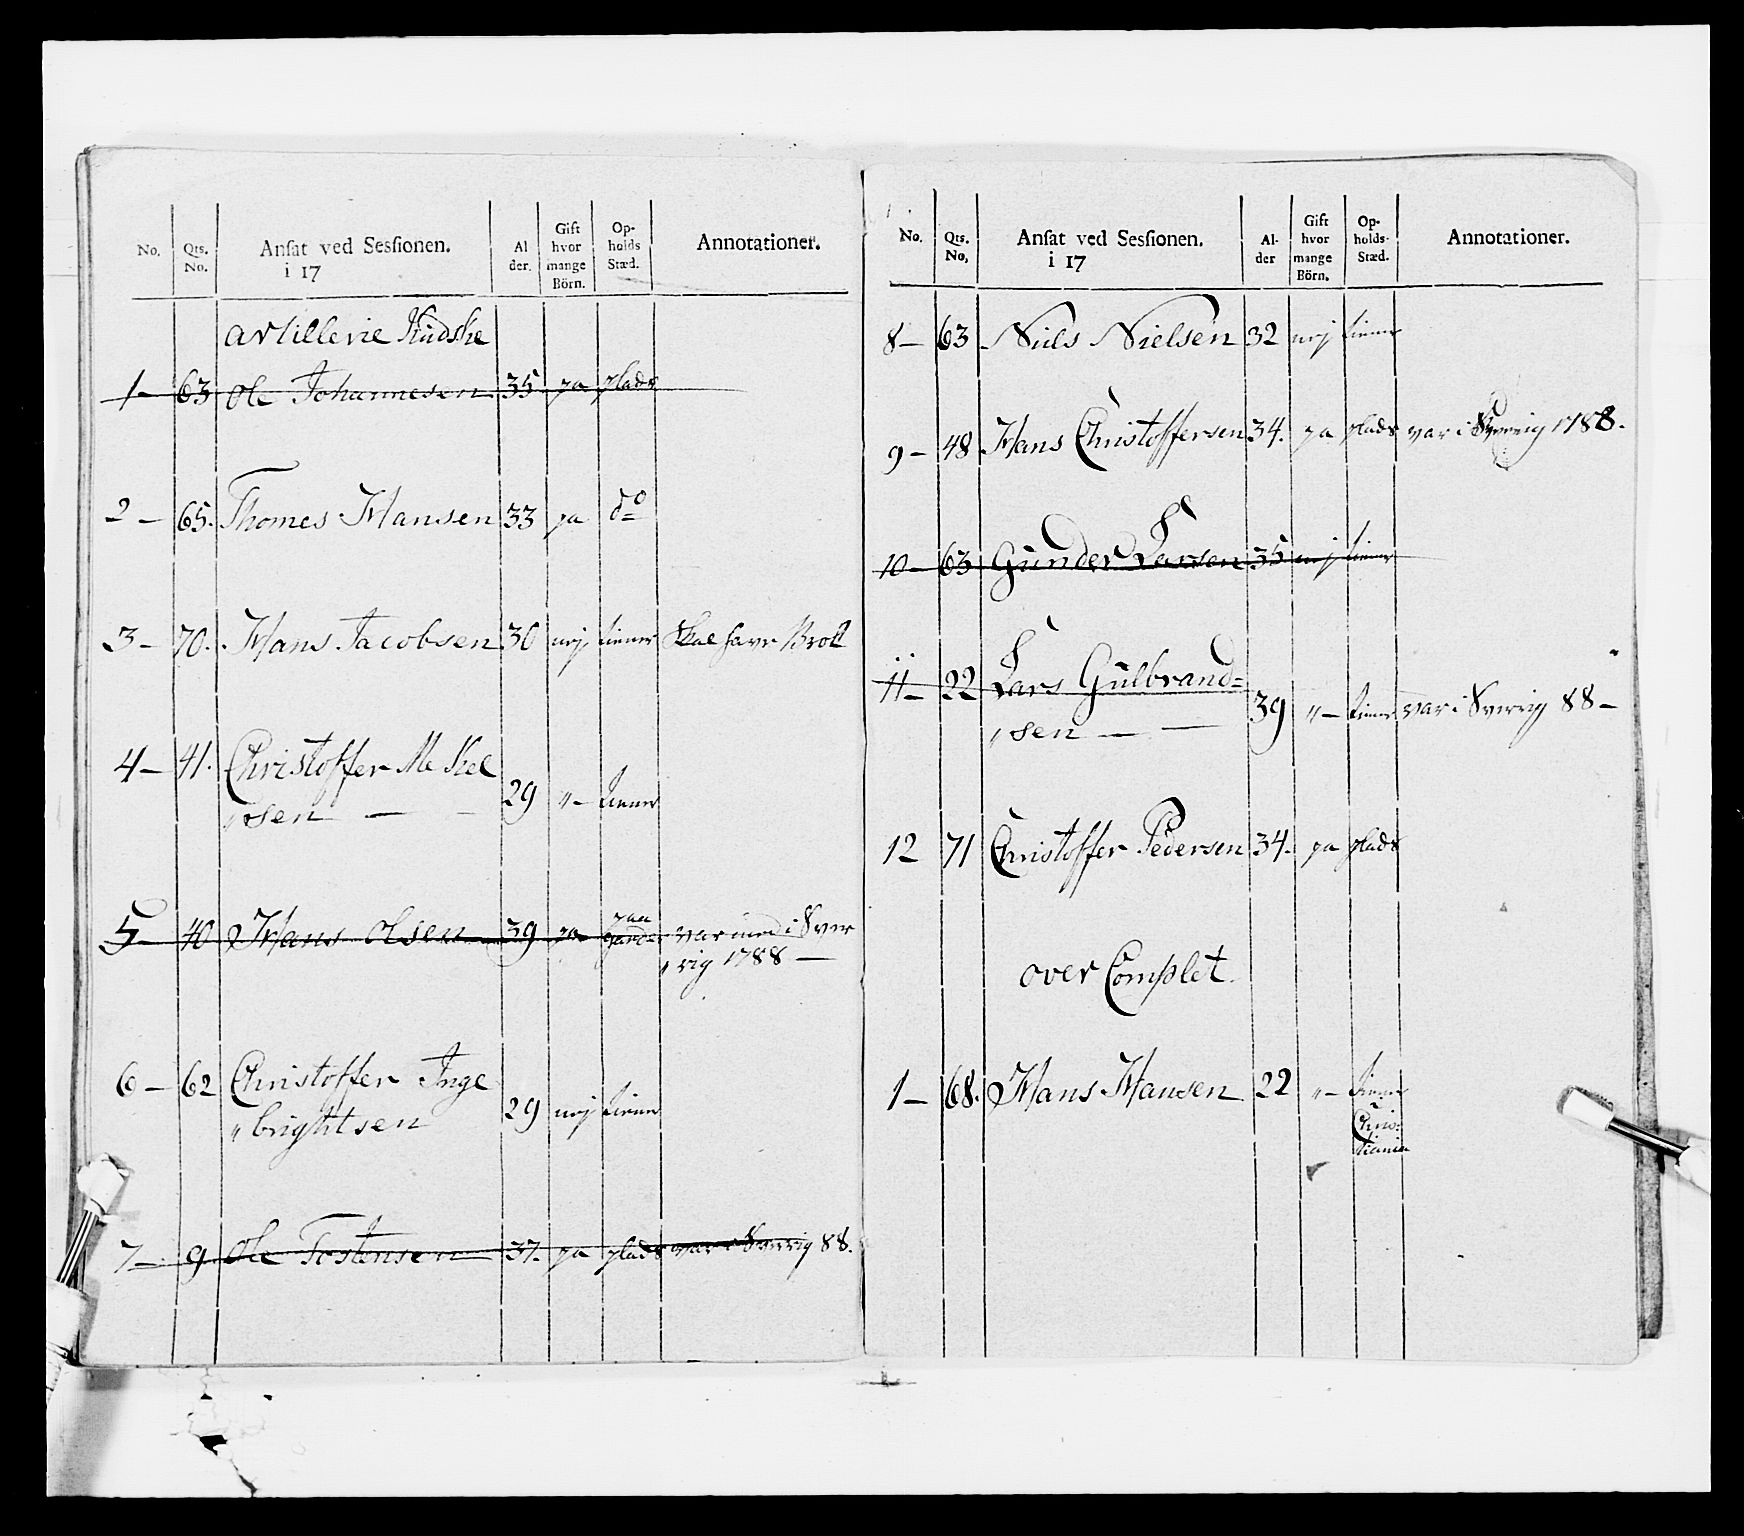 No. Qts. No. Ansat ved Sessionen. i 17 Al der. Gift hvor mange Börn. Op- holds Stæd. Annotationer.
Artillerie Kudske
1 — 63 Ole Johannesen 35 ja plads
2 — 65. Thomes Hansen 33 ja do
3 — 70. Hans Jacobsen 30 nej tiener Skal have Brok
4 — 41. Christoffer Mekel
sen — 29 " — tiener
5 — 40 Hans Olsen 39 ja paa gaarden var med i Sver
rig 1788 —
6 — 62 Christoffer Inge
brightsen 29 nej tiener
7 — 9 Ole Tostensen 37. ja plads var i Sverrig 88.
No. Qts. No. Ansat ved Sessionen. i 17 Al- der Gift hvor mange Börn. Op- holds- Stæd. Annotationer.
8 — 63 Niels Nielsen 32 nej tiener
9 — 48 Hans Christoffersen 34. ja plads var i Sverrig 1788.
10 — 63 Gunder Larsen 35 nej tiener
11 — 22 Lars Gulbrand=
sen — 39 " — tiener var i Sverrig 88 —
12 71 Christoffer Pedersen 34. ja plads
over Complet.
1 — 68. Hans Hansen 22 " — tiener
i
Chris:
tiania